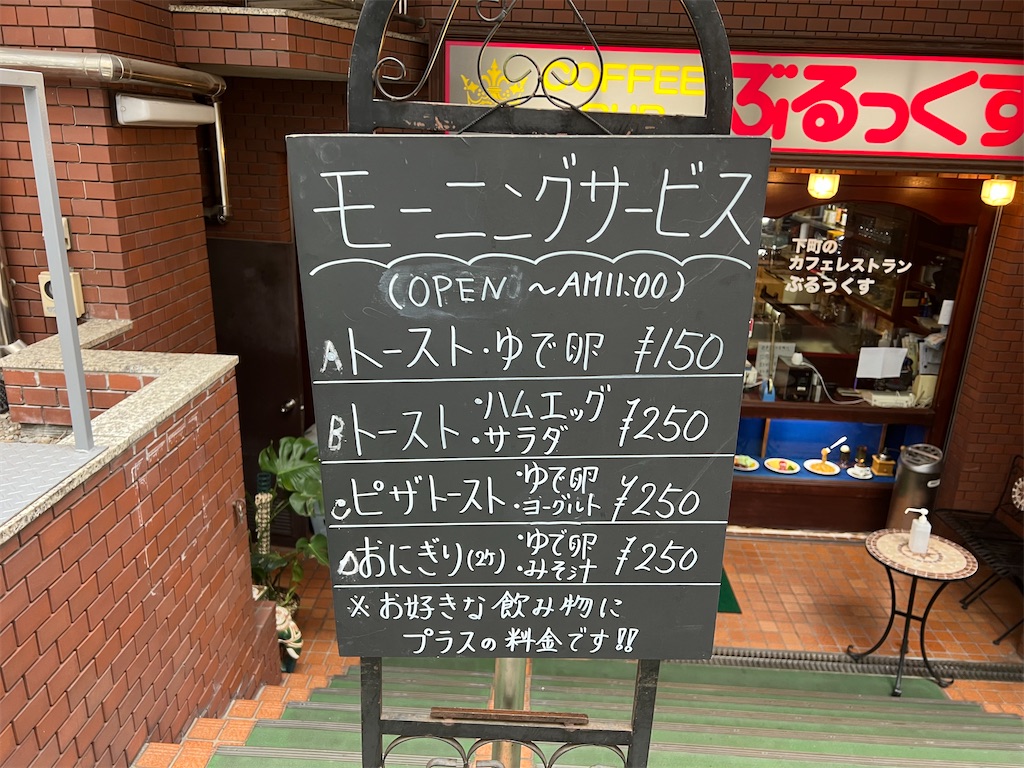 COFFEE
ぶるっくす
下町の
カフェレストラン
ぶるっくす
モーニングサービス
(OPEN ~AM11:00)
Aトースト・ゆで卵 ¥150
Bトースト ・ハムエッグ ・サラダ ¥250
Cピザトースト ・ゆで卵 ・ヨーグルト ¥250
Dおにぎり(2ケ) ・ゆで卵 ・みそ汁 ¥250
※お好きな飲み物に
プラスの料金です!!